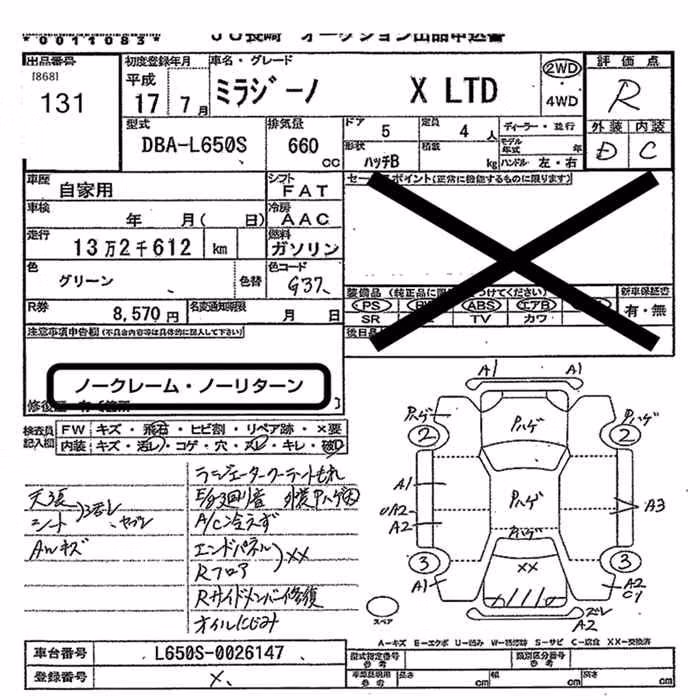 *0011083* JU長崎 オークション出品申込書
出品番号
[868]
131
初度登録年月
平成
17 7月
車名・グレード
ミラジーノ X LTD
2WD
・
4WD
評価点
R
外装 内装
D C
型式
DBA-L650S
排気量
660
cc
ドア
5
定員
4 人
ディーラー・並行
形状
ハッチB
積載
kg
モデル年式 年
ハンドル 左・右
車歴
自家用
シフト
FAT
セールスポイント(正常に機能するものに限ります)
車検
年 月( 日)
冷房
AAC
走行
13万2千612 km
燃料
ガソリン
色
グリーン
色替
色コード
G37
装備品
PS
ABS
エアB
SR
TV
カワ
新車保証書
有・無
R券
8,570円
名変通知期限
月 日
注意事項申告欄(不具合内容等は具体的に記入して下さい)
ノークレーム・ノーリターン
検査員記入欄
FW キズ・飛石・ヒビ割・リペア跡・×要
内装 キズ・汚レ・コゲ・穴・スレ・キレ・破レ
天張
シート
汚レ、ヤブレ
AWキズ
ラジエータークーラントもれ
A/C冷えず
エンドパネル
Rフロア
XX
Rサイドメンバー修復
オイルにじみ
A1 A1
Pハゲ Pハゲ Pハゲ
2 2
A1
Pハゲ
A2
A2
A3
Pハゲ
XX
3 3
A1
A2
C1
ズレ
A2
スペア
A-キズ E-エクボ U-凹み W-補修跡 S-サビ C-腐食 XX-交換済
車台番号
L650S-0026147
登録番号
×
型式指定番号
参考
類別区分番号
参考
車庫証明用
参考
長さ cm
幅 cm
高さ cm